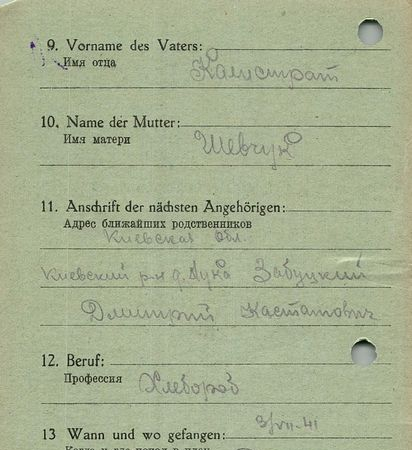 9. Vorname des Vaters:
Имя отца
Калистрат
10. Name der Mutter:
Имя матери
Шевчук
11. Anschrift der nächsten Angehörigen:
Адрес ближайших родственников
Киевская обл.
Киевский р-н д. Забуцкий
Дмитрий
12. Beruf:
Профессия
Хлебороб
13 Wann und wo gefangen:
3/VII-41